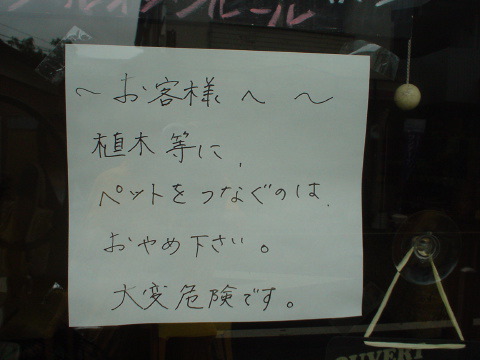 ～お客様へ～
植木等に、
ペットをつなぐのは、
おやめ下さい。
大変危険です。
OUVERT